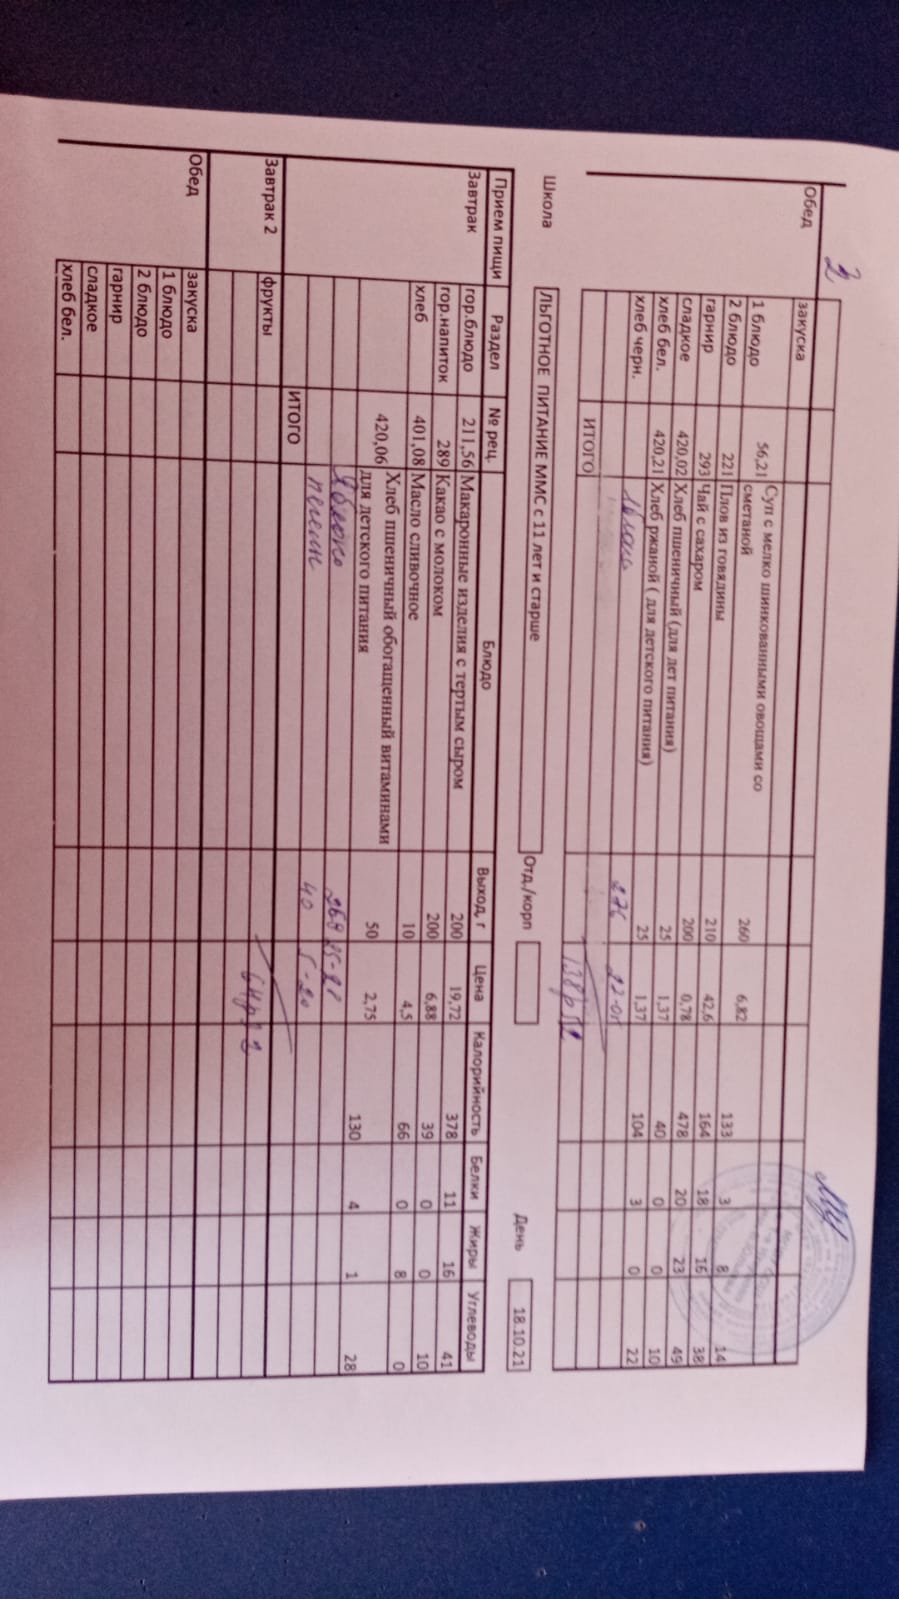 2
Обед закуска
1 блюдо 56,21 Суп с мелко шинкованными овощами со сметаной 260 6,82
2 блюдо 221 Плов из говядины 210 42,6 133 3 8 14
гарнир 293 Чай с сахаром 200 0,78 164 18 16 38
сладкое 420,02 Хлеб пшеничный (для дет питания) 25 1,37 478 20 23 49
хлеб бел. 420,21 Хлеб ржаной ( для детского питания) 25 1,37 40 0 0 10
хлеб черн. 104 3 0 22
ИТОГО
Школа ЛЬГОТНОЕ ПИТАНИЕ ММС с 11 лет и старше Отд./корп День 18.10.21
Прием пищи Раздел № рец. Блюдо Выход, г Цена Калорийность Белки Жиры Углеводы
Завтрак гор.блюдо 211,56 Макаронные изделия с тертым сыром 200 19,72 378 11 16 41
гор.напиток 289 Какао с молоком 200 6,88 39 0 0 10
хлеб 401,08 Масло сливочное 10 4,5 66 0 8 0
420,06 Хлеб пшеничный обогащенный витаминами для детского питания 50 2,75 130 4 1 28
Яблоко
40 5-20
ИТОГО
Завтрак 2 фрукты
Обед закуска
1 блюдо
2 блюдо
гарнир
сладкое
хлеб бел.